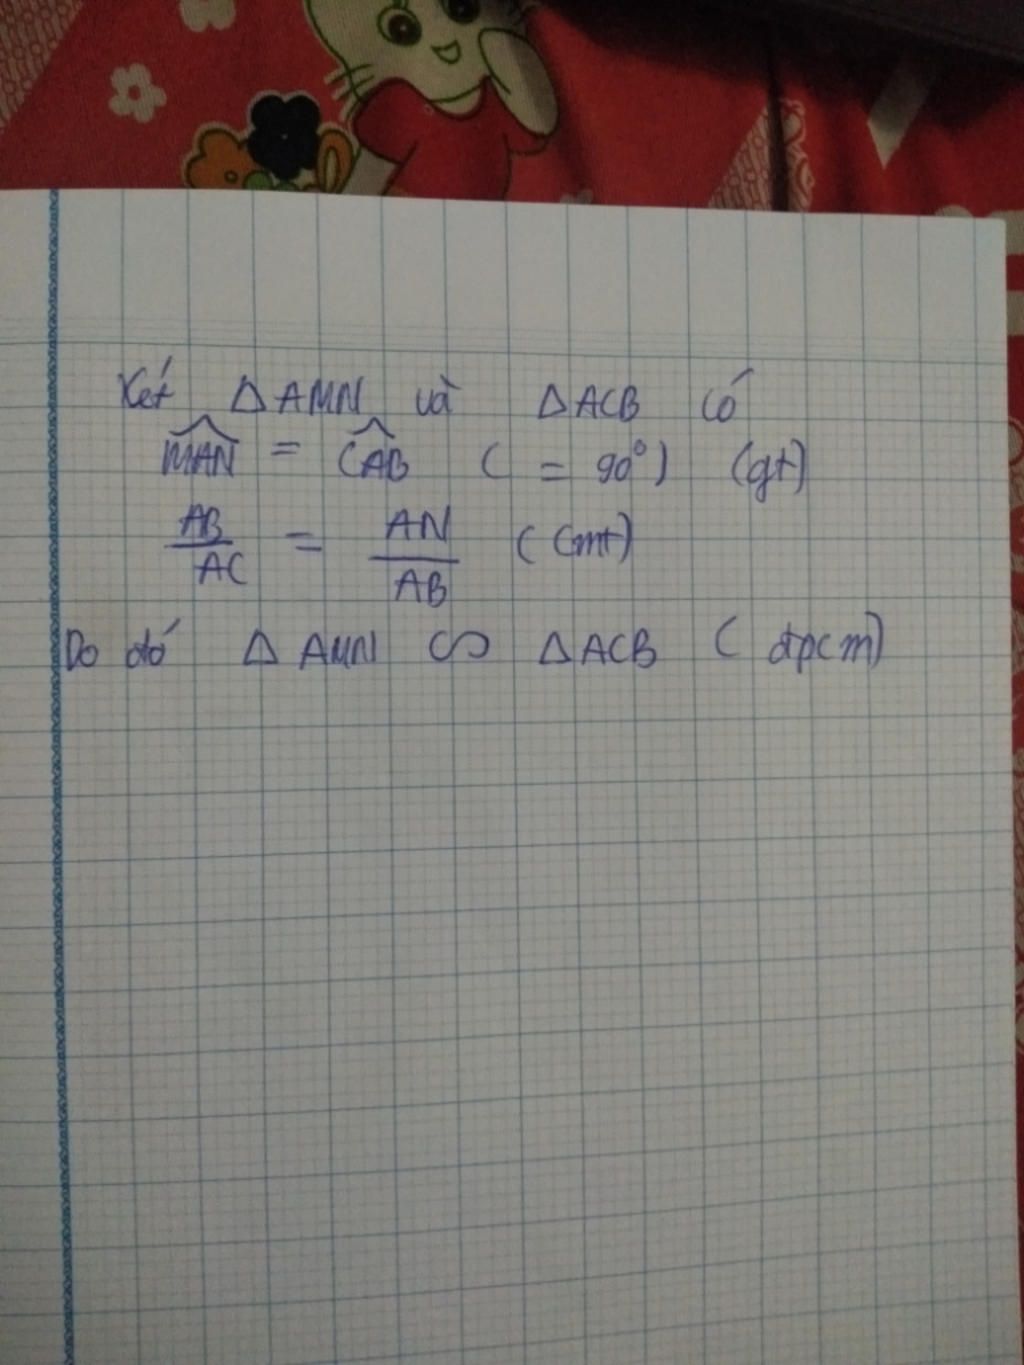 Xét ΔAMN và ΔACB có
\widehat{MAN} = \widehat{CAB} ( = 90°) (gt)
\frac{AB}{AC} = \frac{AN}{AB} (cmt)
Do đó ΔAMN ∽ ΔACB ( đpcm)